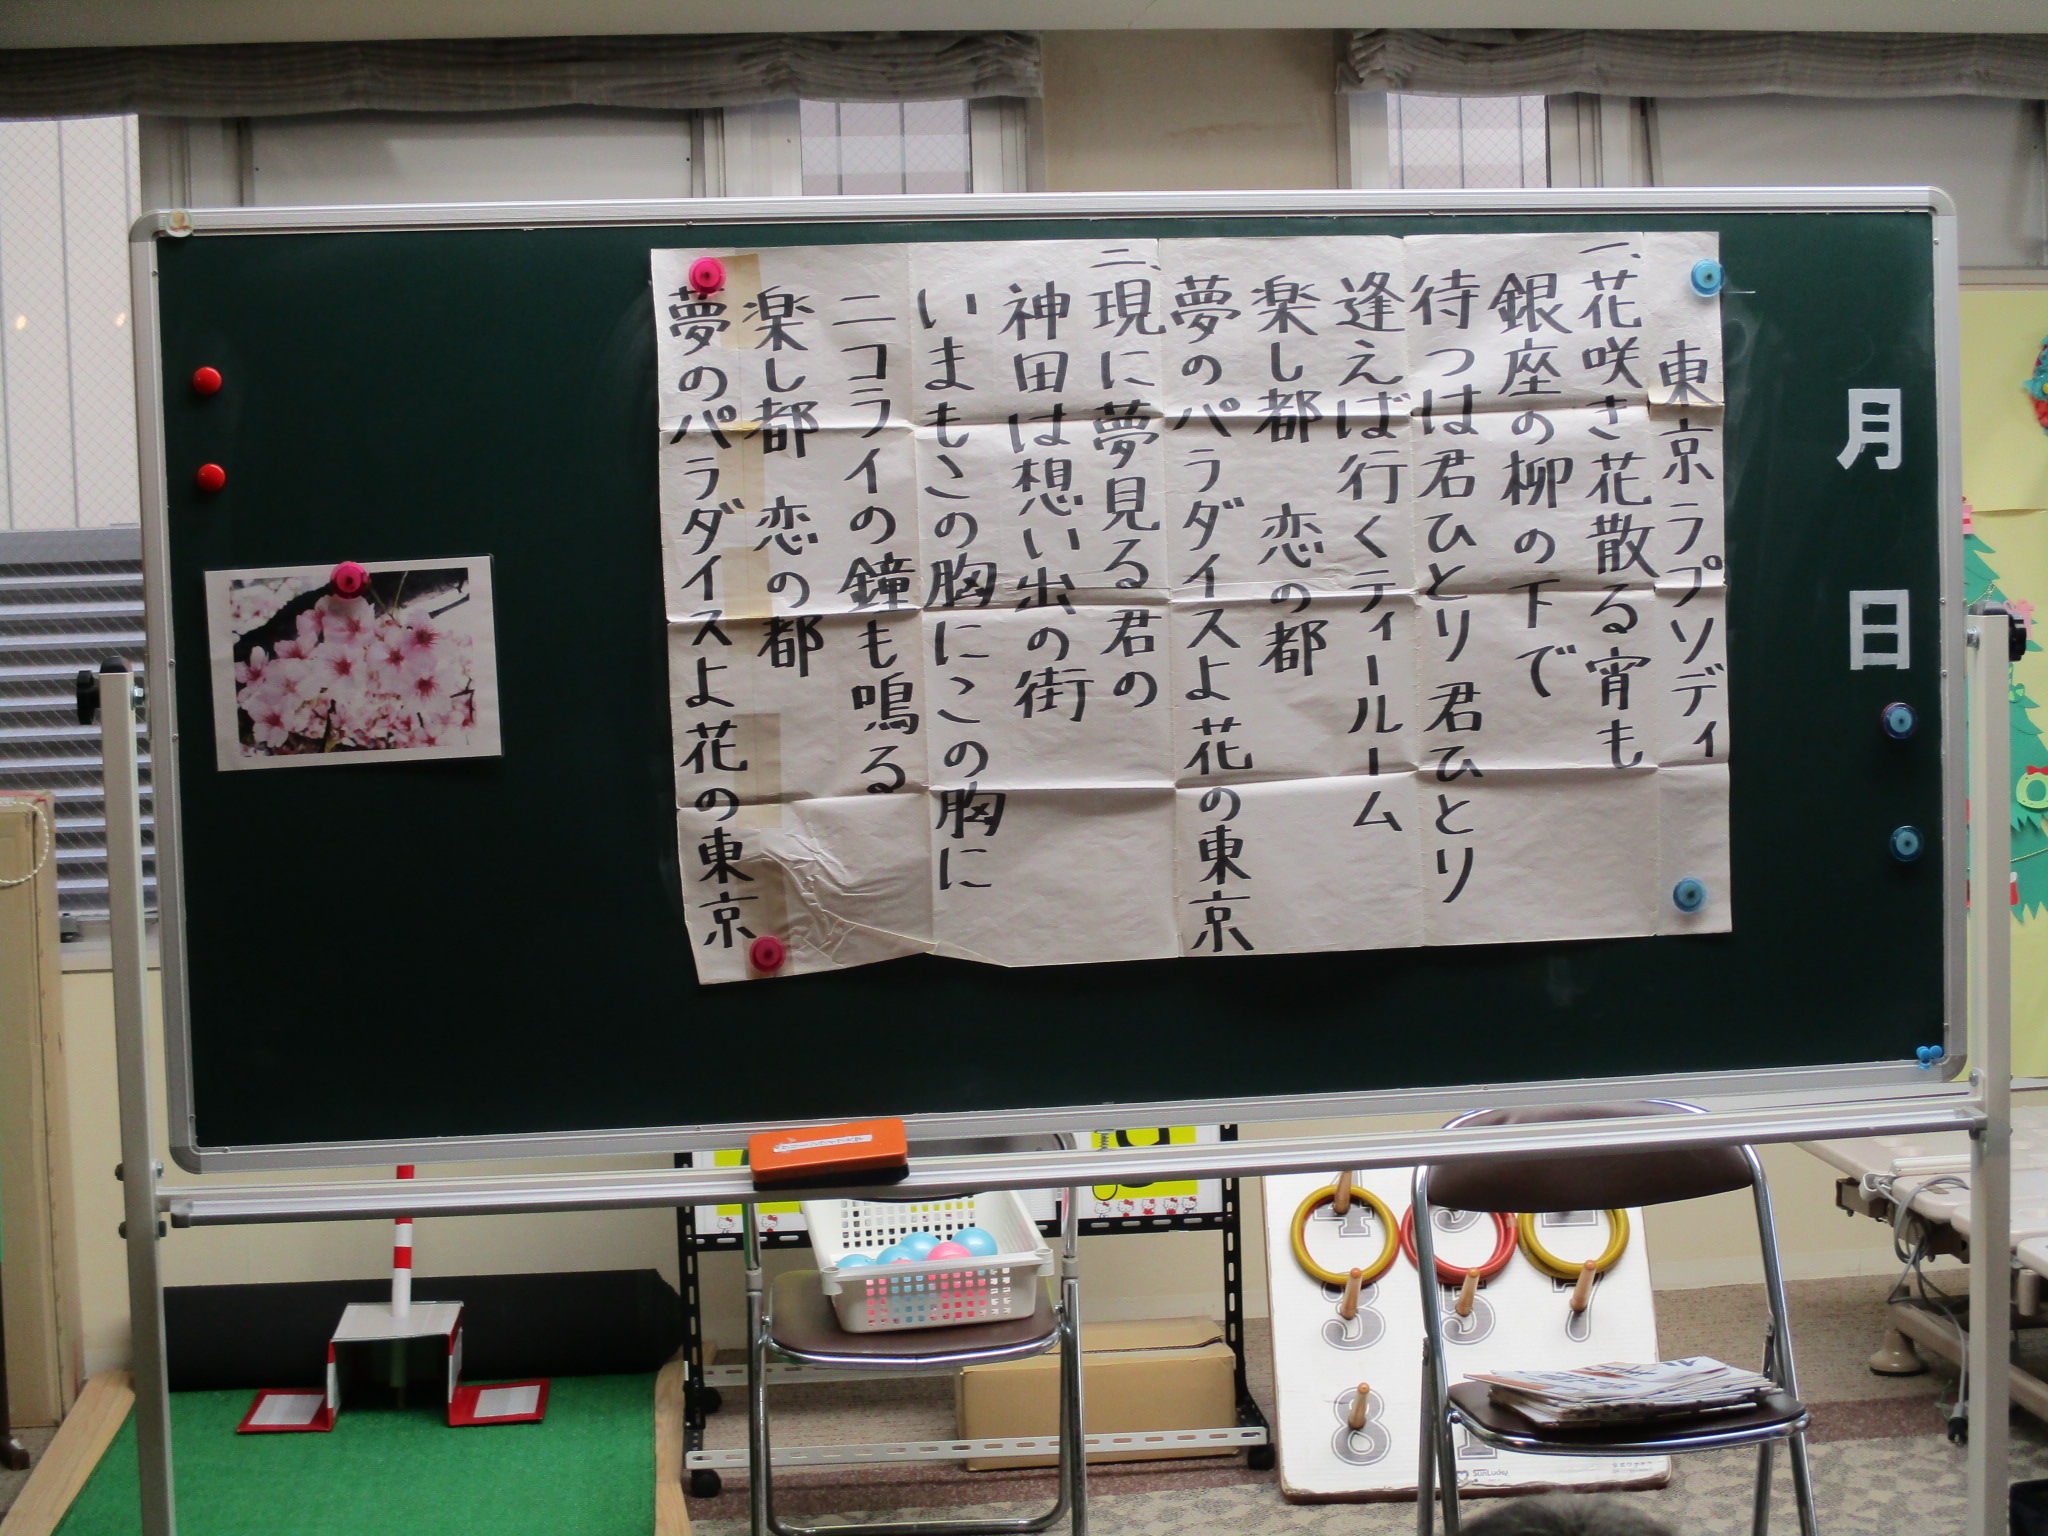 月
日
東京ラプソディ
一、花咲き花散る宵も
銀座の柳の下で
待つは君ひとり 君ひとり
逢えば行くティールーム
楽し都 恋の都
夢のパラダイスよ 花の東京
二、現に夢見る君の
神田は想い出の街
いまもこの胸にこの胸に
ニコライの鐘も鳴る
楽し都 恋の都
夢のパラダイスよ 花の東京
4
3
5
7
8
1
SunLucky